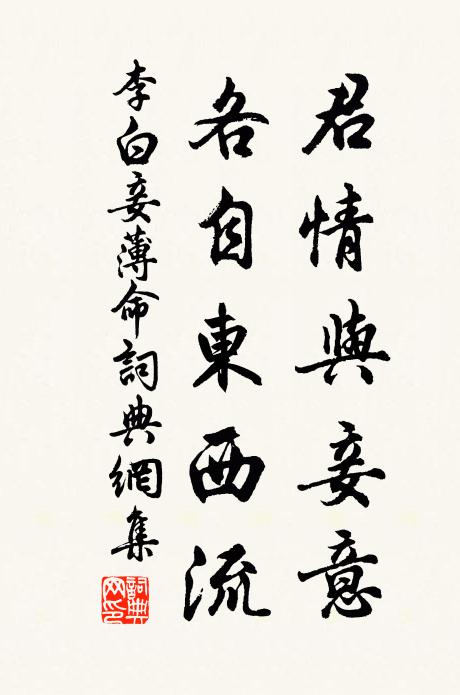 君情與妾意
各自東西流
李白妾薄命詞典網集
詞典网印